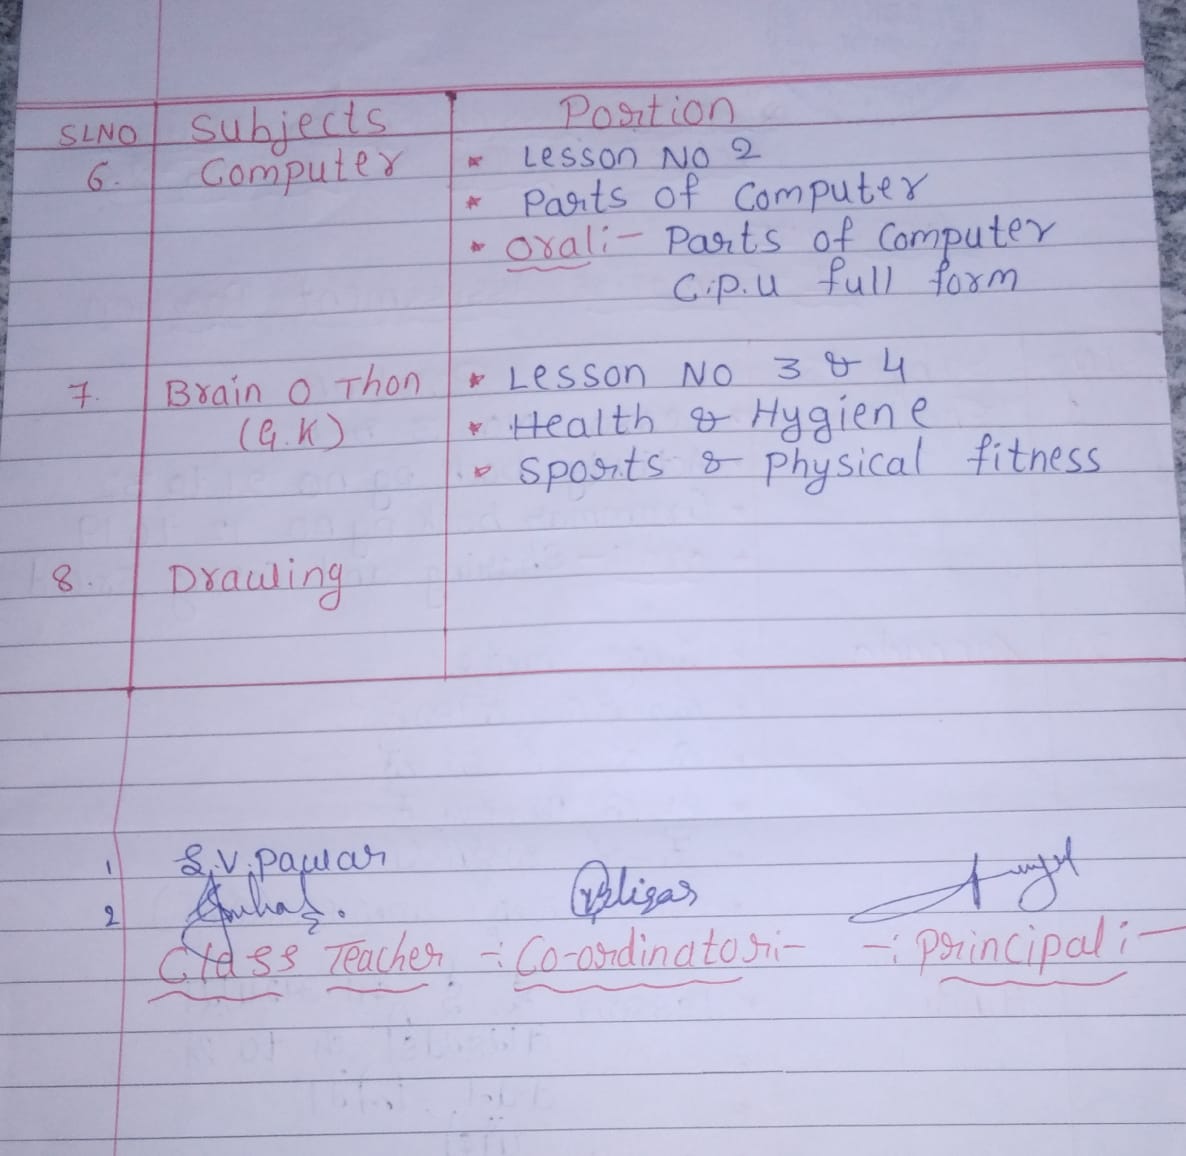 SLNO Subjects Portion
6. Computer * Lesson No 2
* Parts of Computer
* Oral:- Parts of Computer
C.P.U full form
7. Brain O Thon * Lesson No 3 & 4
(G.K) * Health & Hygiene
* Sports & Physical fitness
8. Drawing
1 S.V.Pawar
2
Class Teacher -: Co-ordinator:- -: Principal:-